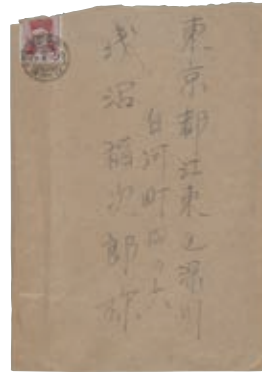 東京都江東区深川
白河町四ノ六
浅沼稲次郎様